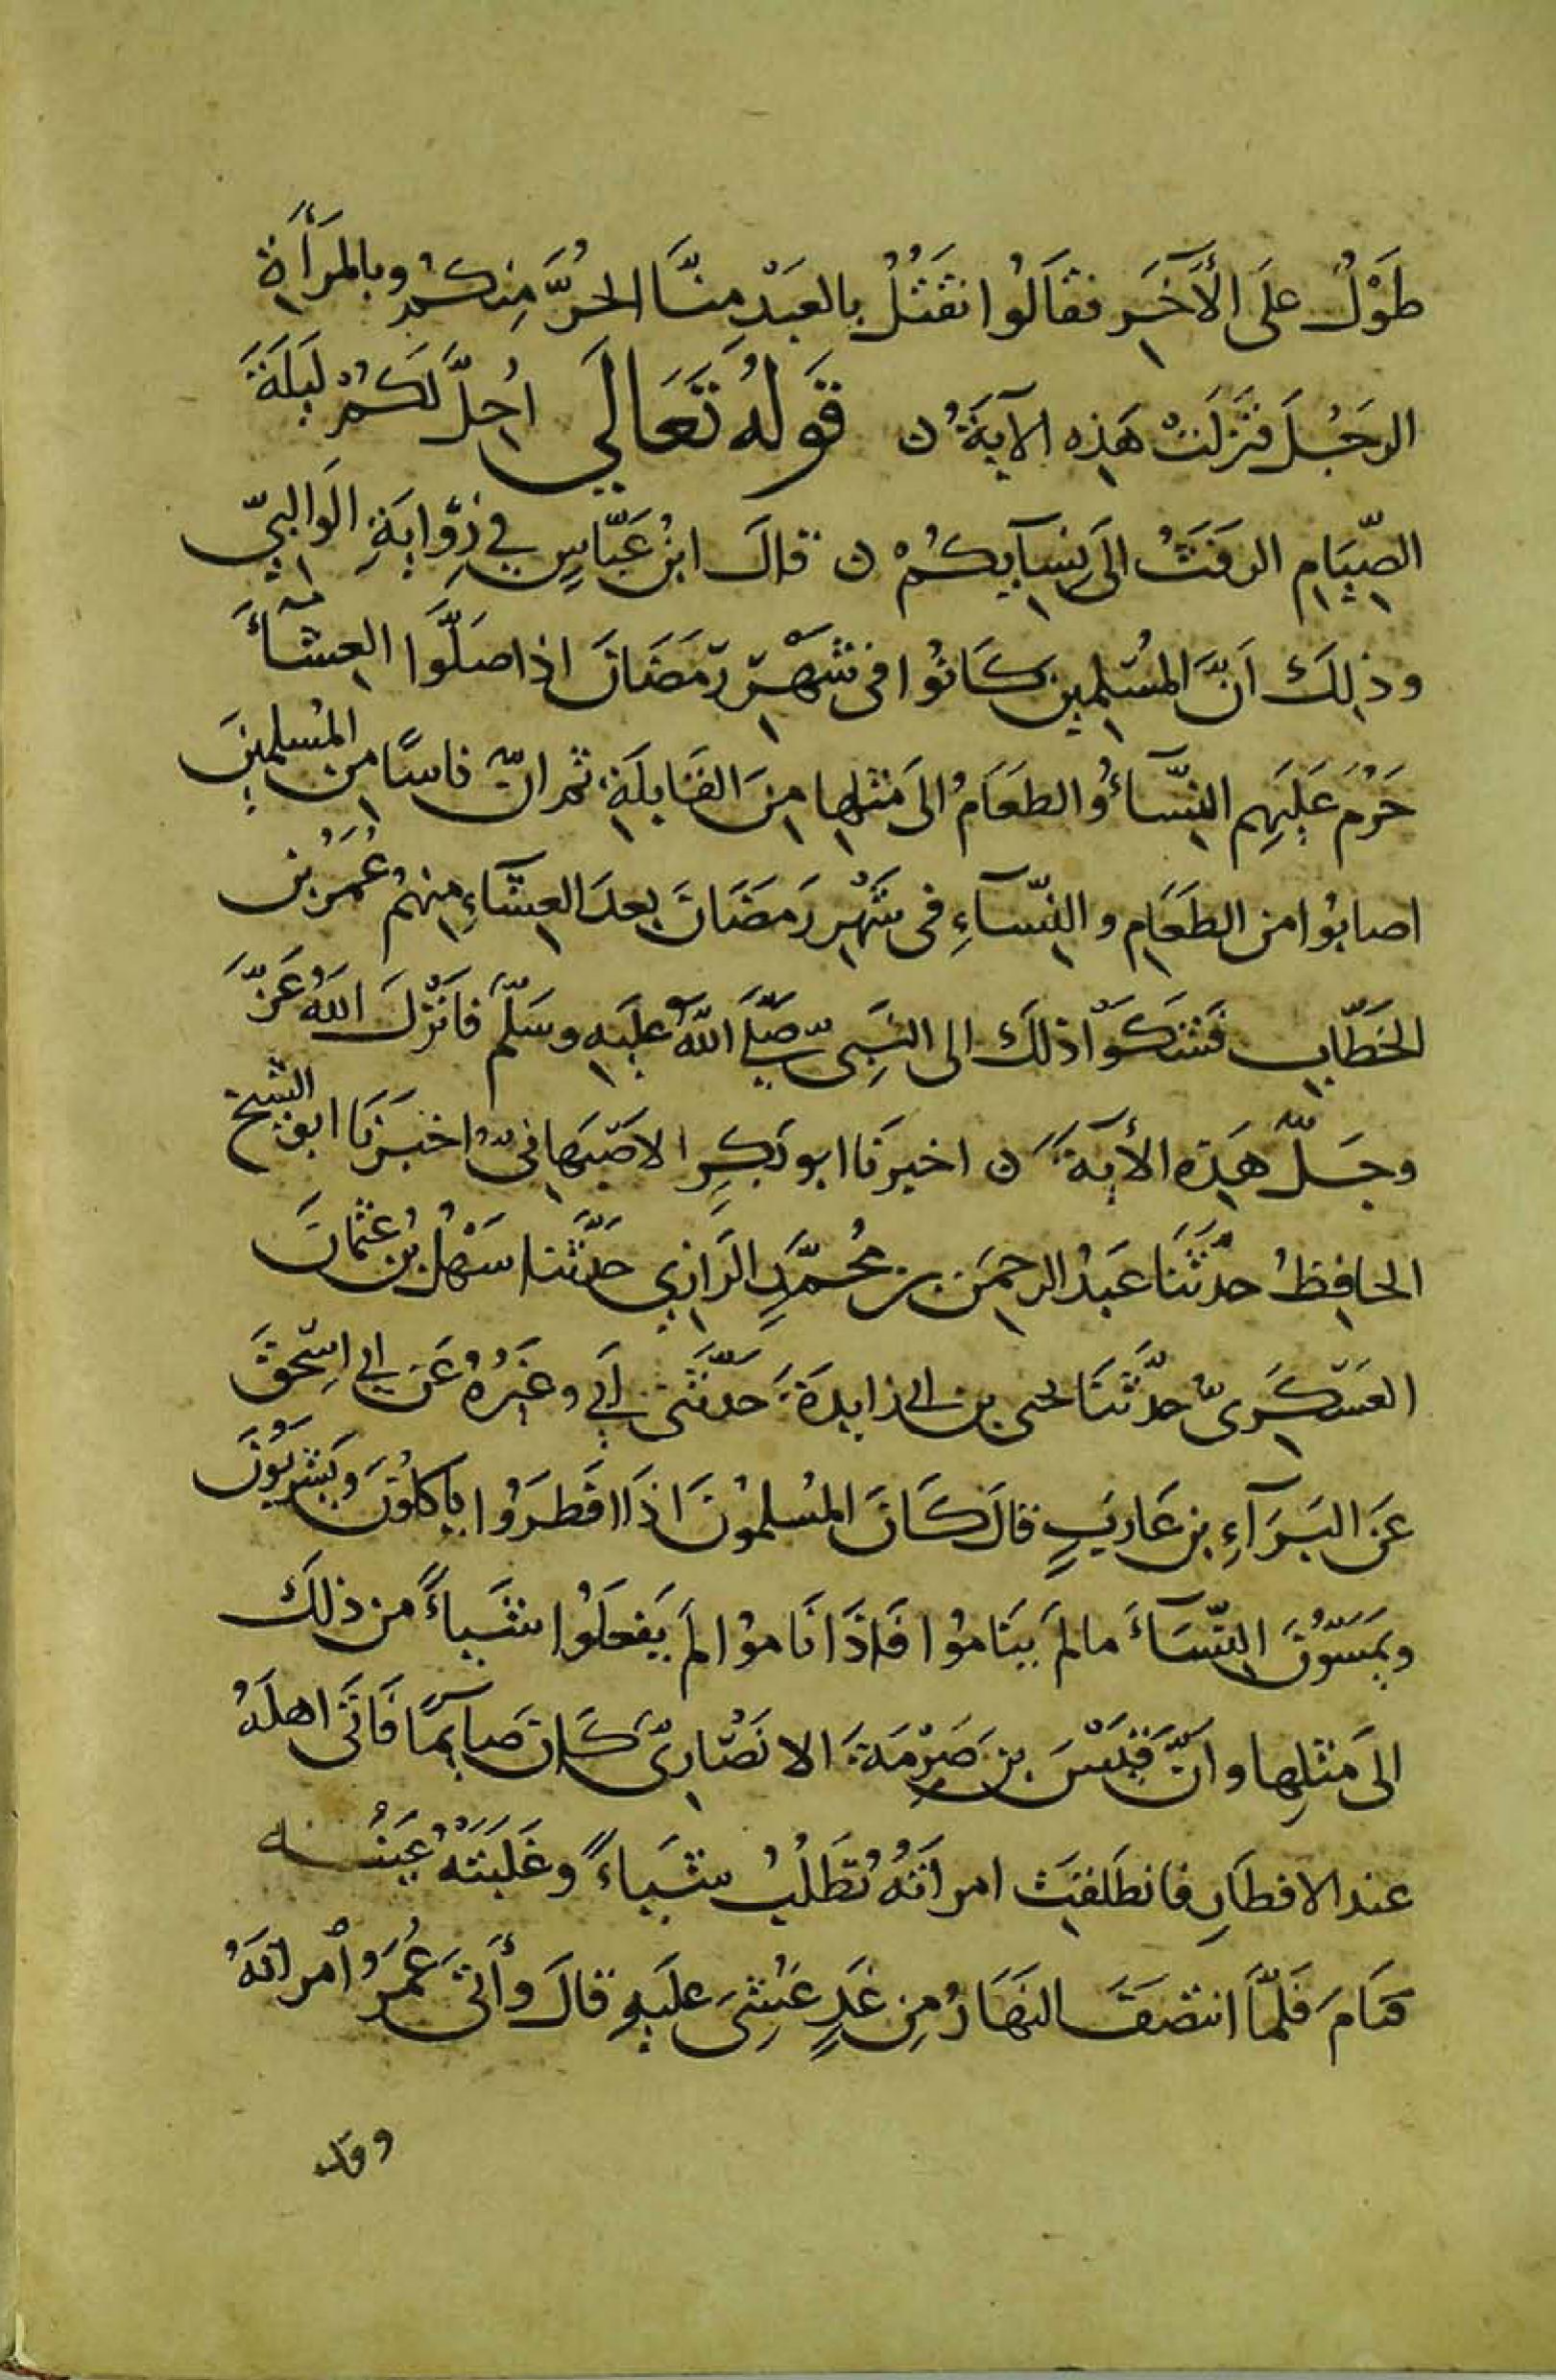 طَوْلٌ علَى الأَخَر فقَالُوا نقَتُلُ بالعَبْدِ مِنَّا الحُرَّ مِنكُم وبالمَرأَة
الرجُلَ فنَزلَتْ هَذِه الآيَةُ ن قَولهُ تَعَالَي احِلَّ لَكُمْ لَيلَةَ
الصِّيَامِ الرفَثُ الَى نِسَآيِكُمْ ن قالَ ابنُ عَبّاسٍ في رِوايَةِ الوَالبيّ
وذلِكَ اَنَّ المُسْلمِينَ كَانُوا فى شَهْر رَمَضَانَ اذا صَلَّوا العِشَآءَ
حَرُمَ عَلَيهِم النِسّآءُ والطعَامُ الى مثلِها مِنَ القَابِلَةِ ثم انّ ناسًا مِن المُسلمِينَ
اصابُوا من الطعَامِ والنِسّآءِ فى شَهْرِ رَمضَانَ بعدَ العِشَآءِ مِنهُم عُمَرُ بن
الخَطّابِ فَشَكَوْا ذلكَ الى النَبِى صَلَّى اللهُ عليهِ وسَلَّمَ فاَنْزلَ اللهُ عَزَّ
وجَلَّ هَذِه الأيةَ ن اخبرنَا ابو بَكرٍ الاصْبَهانِىّ اخبَرنَا ابو الشيخ
الحافِظُ حدثنَا عَبْدُ الرحمَن بن مُحمَّدٍ الرَازِي حدّثنا سَهْلُ بنُ عثمانَ
العَسْكَرِىّ حدّثَنَا يحيى بن ابى زايدَةَ حَدّثَنى اَبي وغَيرُهُ عَن ابي اسْحقَ
عَن البَرَآءِ بن عَازِبٍ قالَ كَانَ المُسلمُونَ اذَا افَطرُوا ياكلُونَ وَيَشربُونَ
ويمَسّونَ النِسّآءَ مالمَ ينَامُوا فَاذَا نَامُوا لمَ يَفعلُوا شَياءً من ذلكَ
الَى مثلِها وانّ قَيْسَ بن صَرْمَةَ الانصَارِىّ كَانَ صَآيمًا فَاتَى اهلَهُ
عند الافطَارِ فانطَلقَت امراَتُهُ تَطَلُبُ شَياءً وغَلَبَتهُ عَينُه
فنَامَ فَلمّا انتصَفَ النهَارُ مِن غَدٍ غُشِىَ عليهِ قالَ وأَتَى عُمَرُ امرأتَهُ
وقد